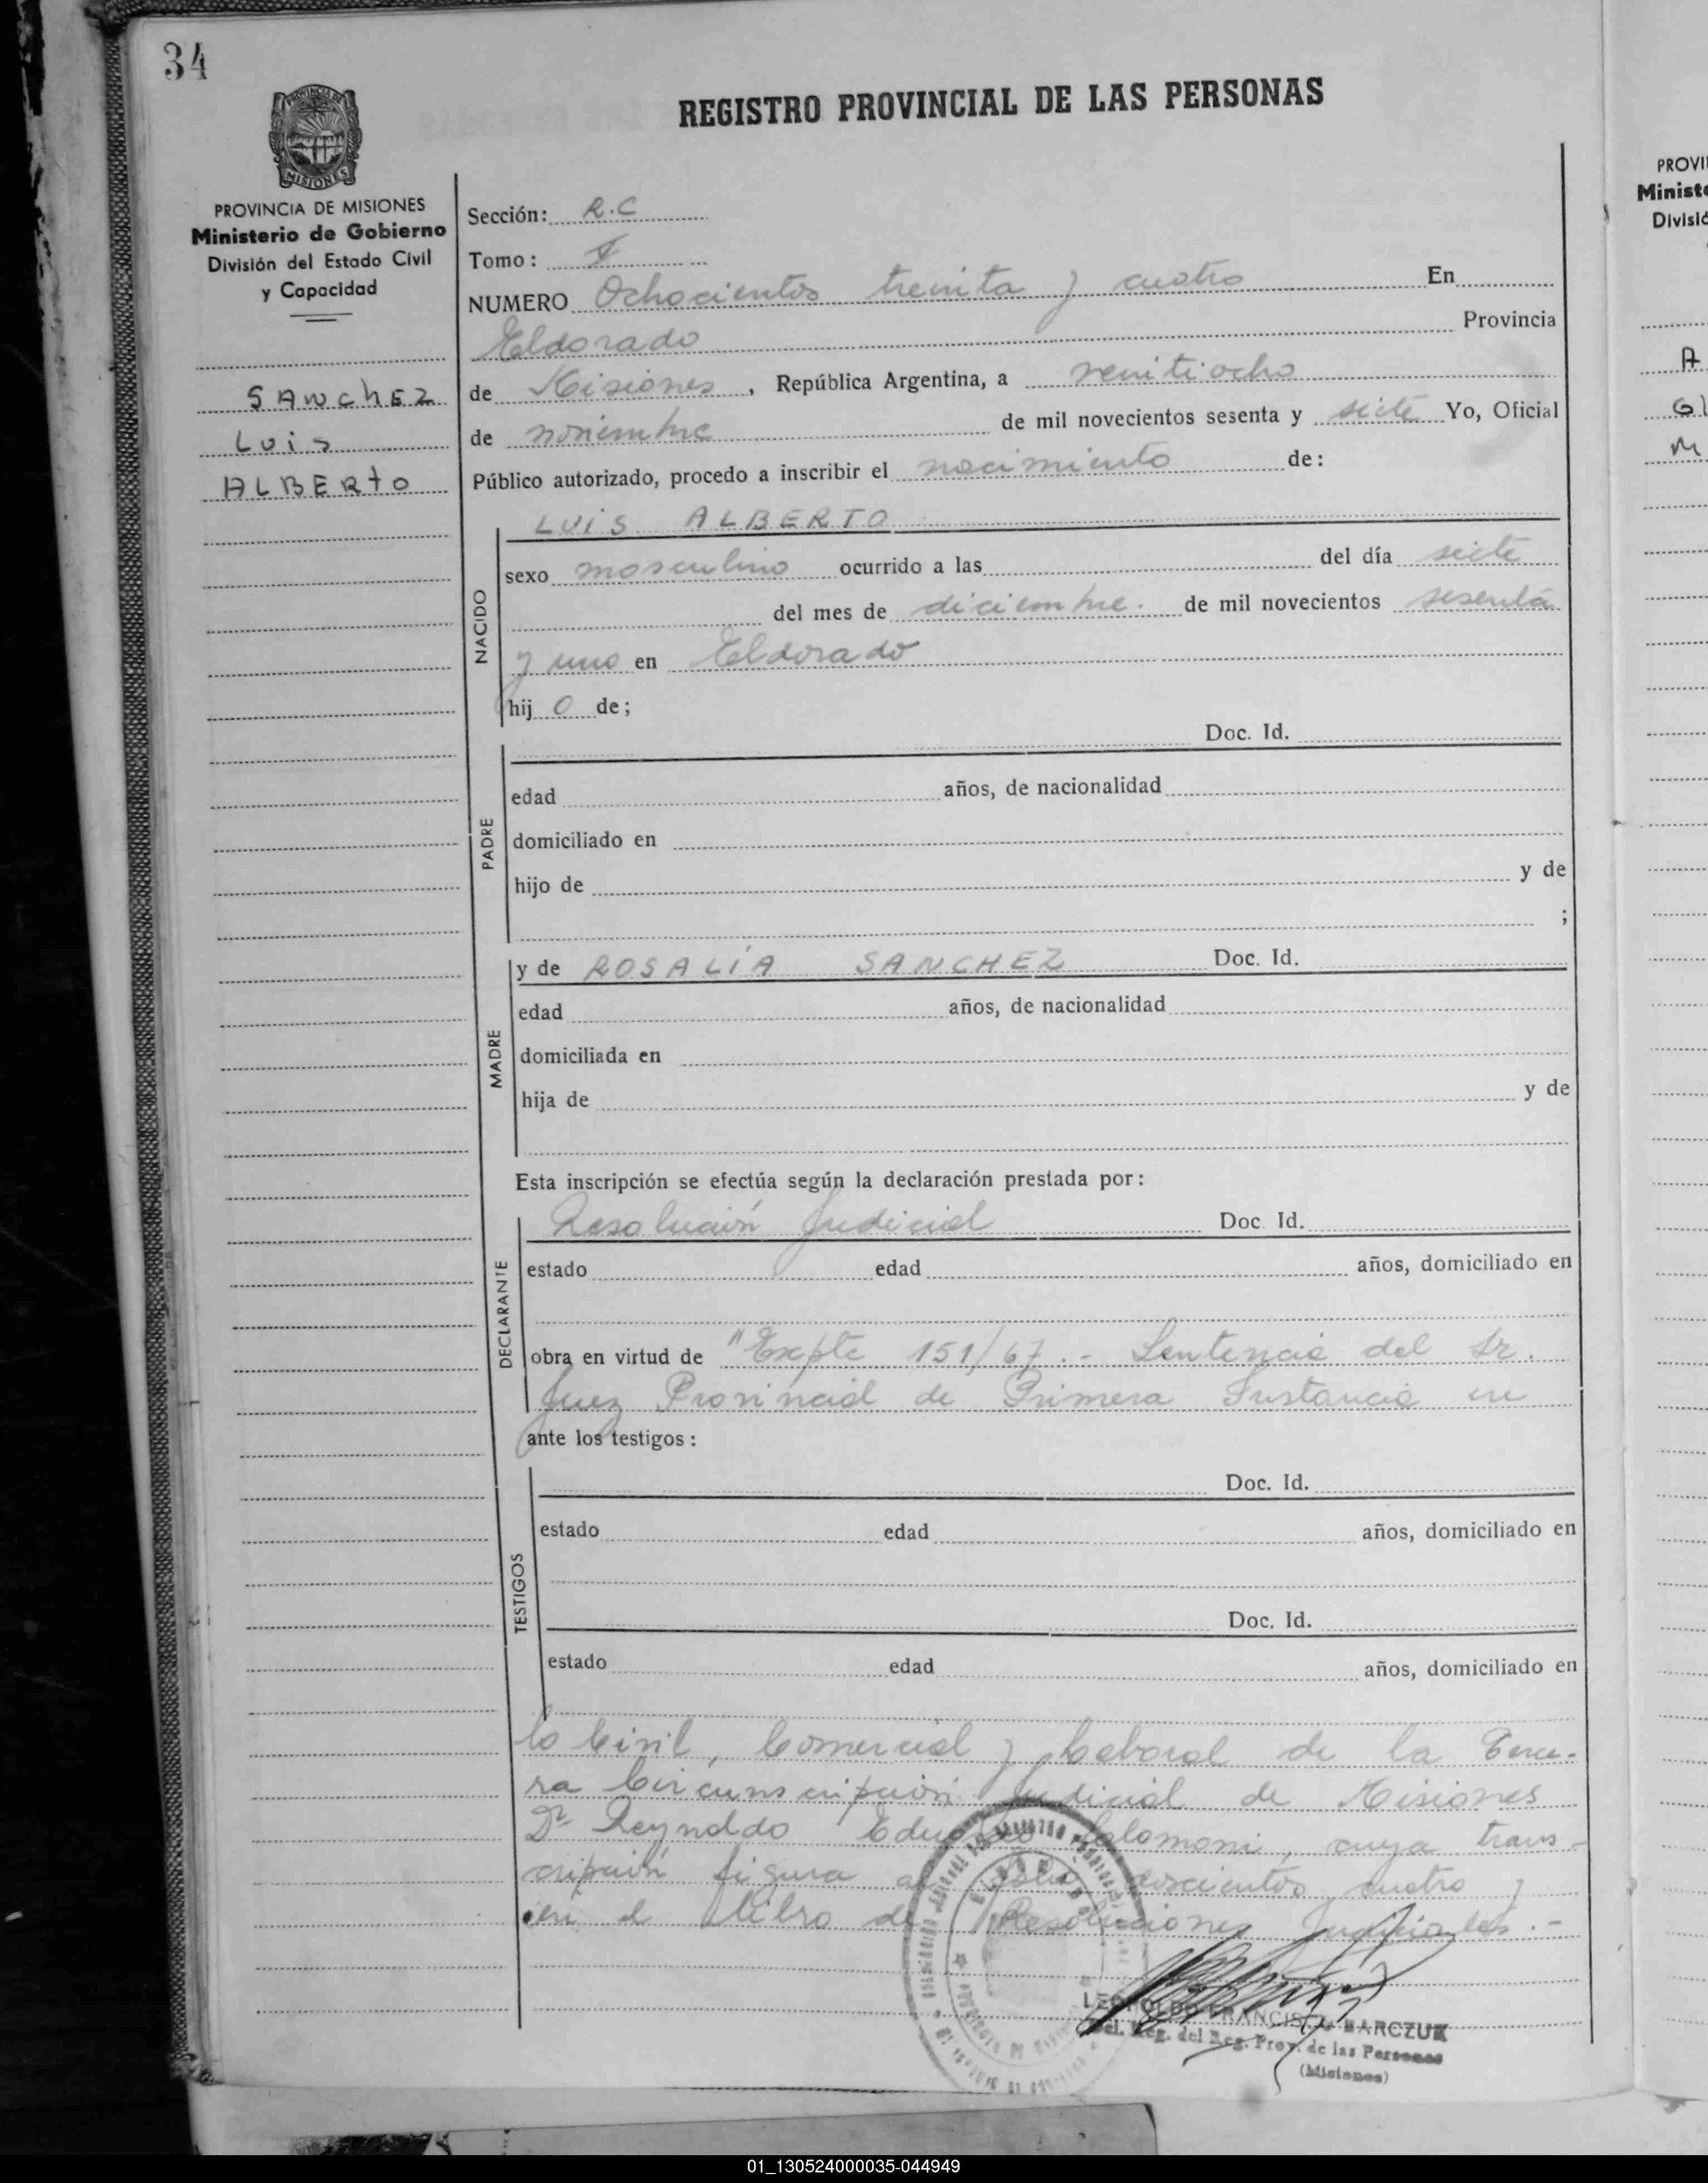 34
REGISTRO PROVINCIAL DE LAS PERSONAS
PROVINCIA DE
MISIONES
PROVINCIA DE MISIONES
Ministerio de Gobierno
División del Estado Civil
y Capacidad
SANCHEZ
LUIS
ALBERTO
Sección: R.C
Tomo: I
NUMERO Ochocientos treinta y cuatro En
Eldorado Provincia
de Misiones, República Argentina, a veintiocho
de noviembre de mil novecientos sesenta y siete Yo, Oficial
Público autorizado, procedo a inscribir el nacimiento de:
LUIS ALBERTO
NACIDO
sexo masculino ocurrido a las del día siete
del mes de diciembre. de mil novecientos sesenta
y uno en Eldorado
hij o de;
Doc. Id.
PADRE
edad años, de nacionalidad
domiciliado en
hijo de y de
;
MADRE
y de ROSALÍA SANCHEZ Doc. Id.
edad años, de nacionalidad
domiciliada en
hija de y de
Esta inscripción se efectúa según la declaración prestada por:
DECLARANTE
Resolución Judicial Doc. Id.
estado edad años, domiciliado en
obra en virtud de "Expte 151/67.- Sentencia del Sr.
Juez Provincial de Primera Instancia en
ante los testigos:
TESTIGOS
Doc. Id.
estado edad años, domiciliado en
Doc. Id.
estado edad años, domiciliado en
lo Civil, Comercial y Laboral de la Terce-
ra Circunscripción Judicial de Misiones
Dr Reynaldo Eduardo, cuya trans-
cripción figura al folio doscientos cuatro y
en el libro de Resoluciones Judiciales.-
LEOPOLDO FRANCISCO BARCZUK
Del. Reg. del Reg. Prov. de las Personas
(Misiones)
PROVI
Ministe
Divisió
A
Gl
M
01_130524000035-044949